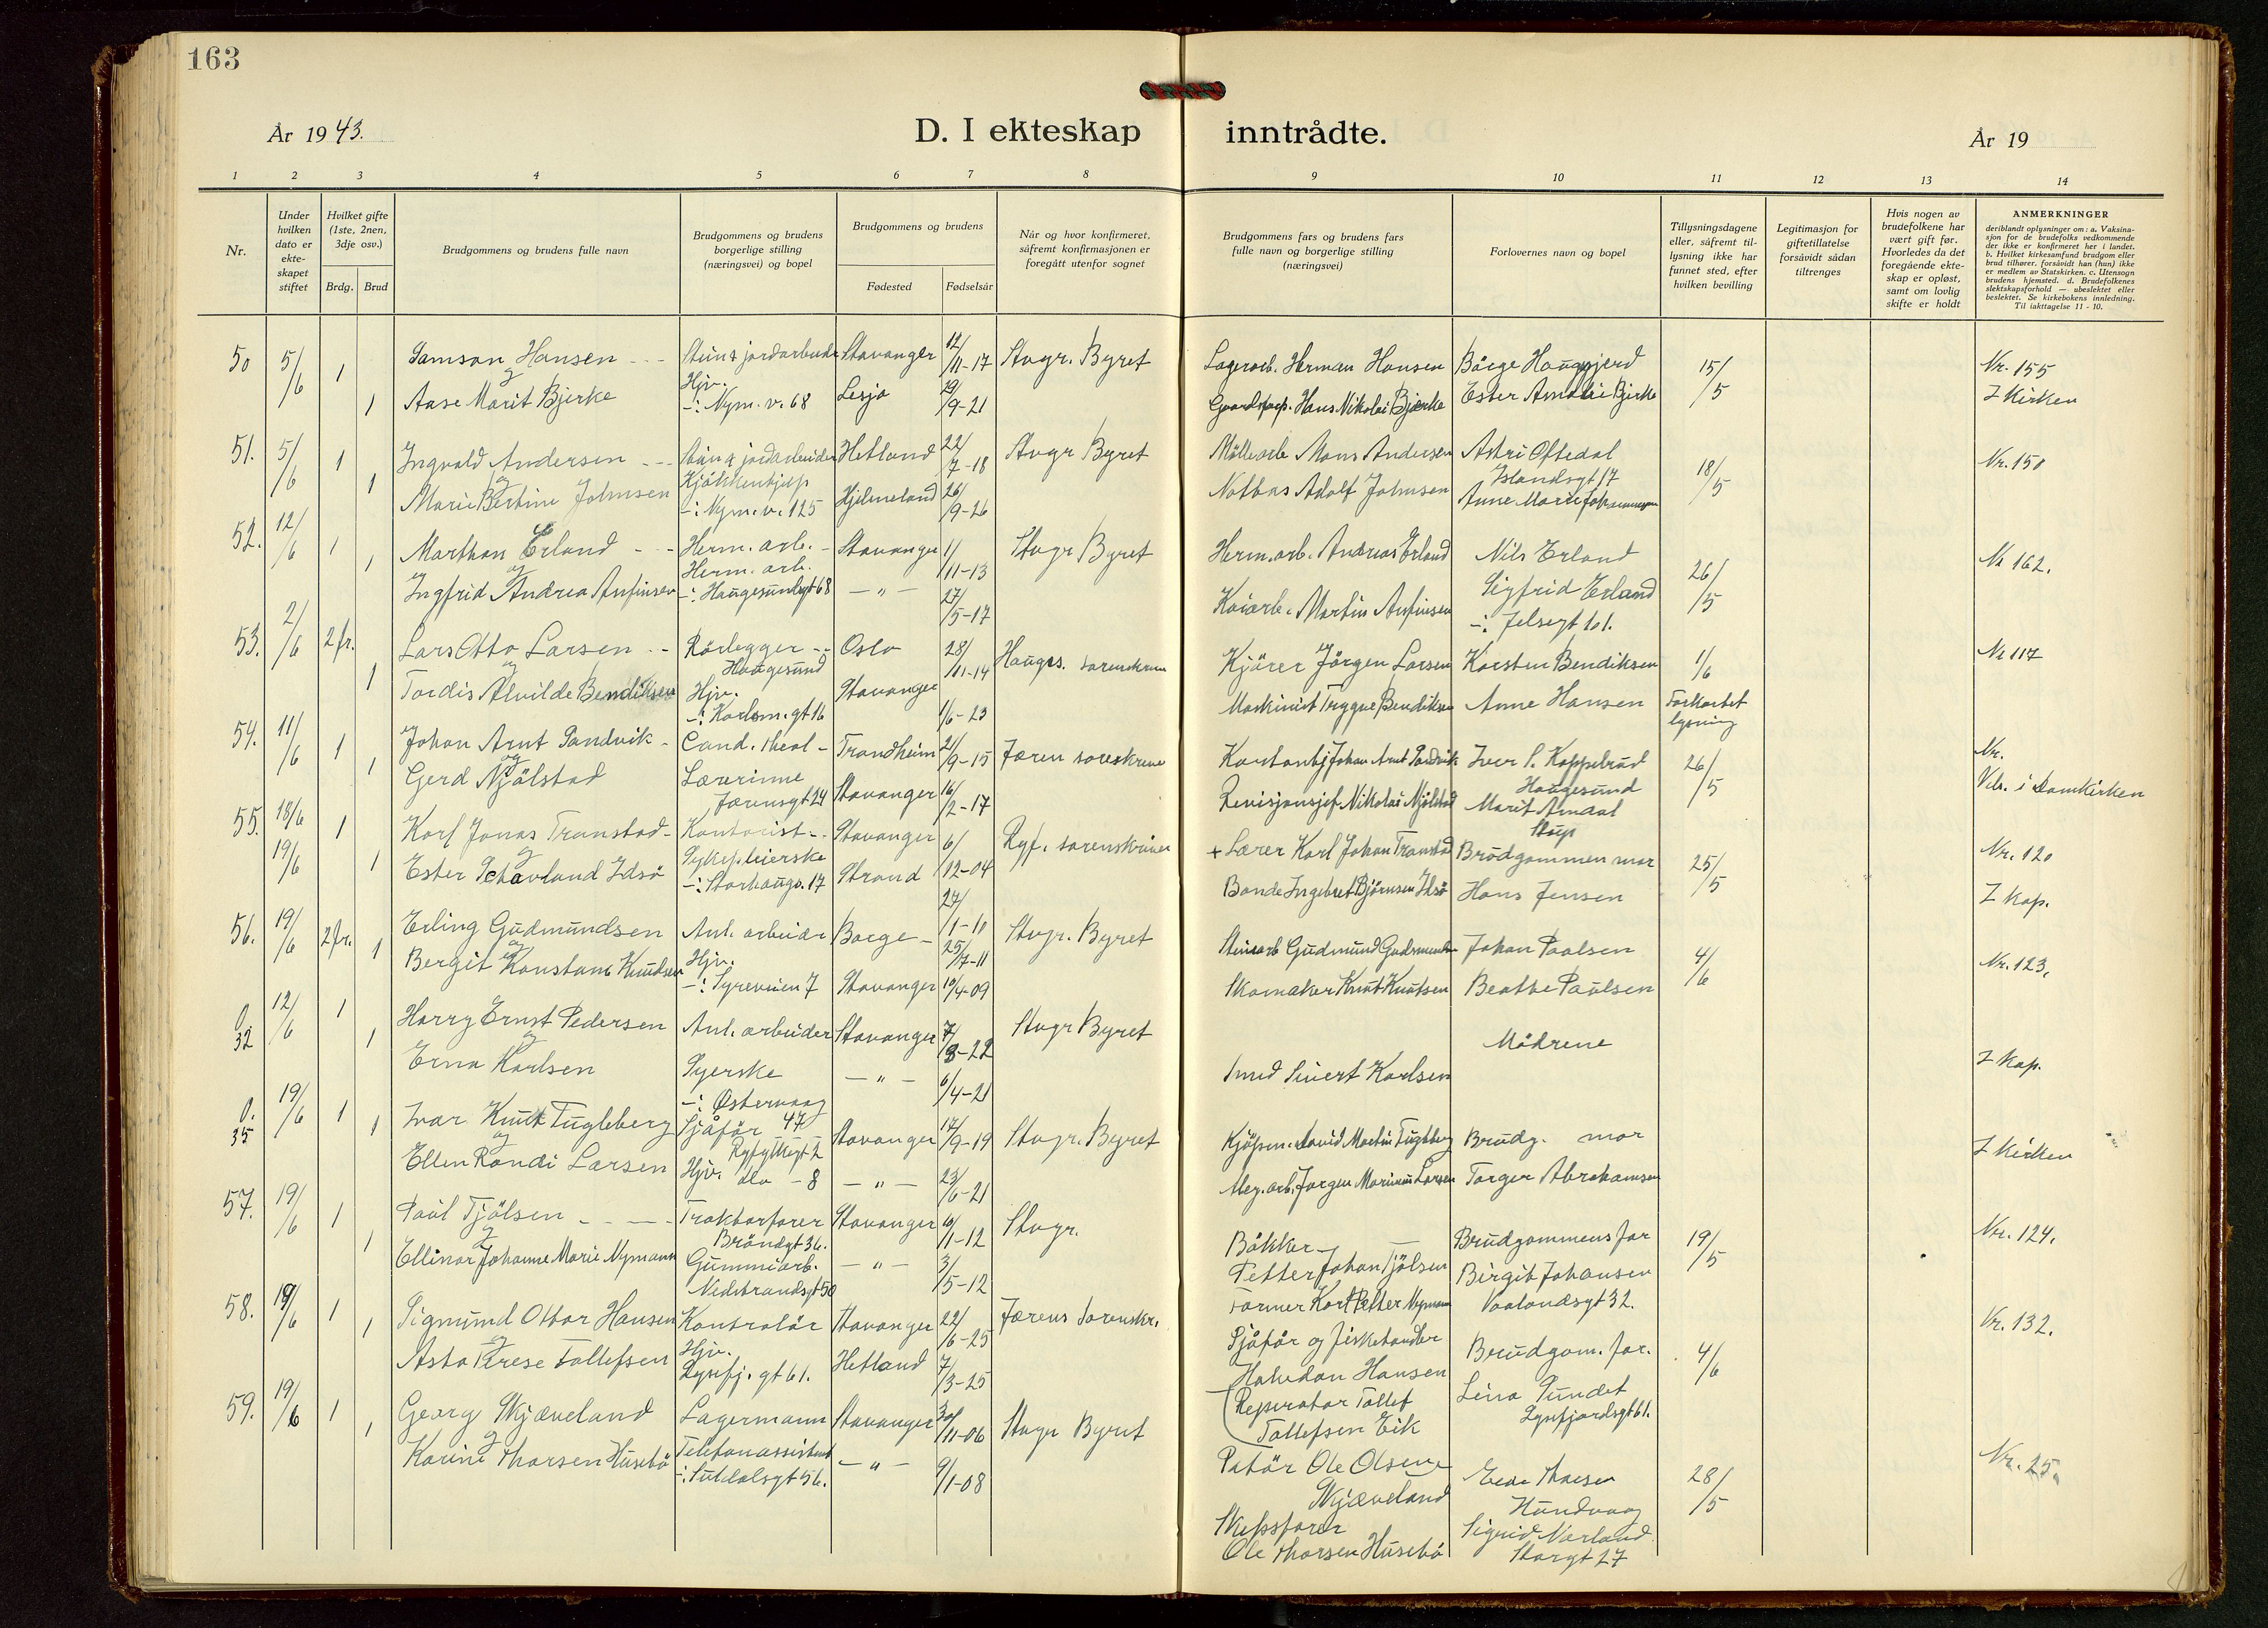 163
År 1943.
D. I ekteskap inntrådte.
År 19
1 2 3 4 5 6 7 8 9 10 11 12 13 14
Nr.
Under hvilken dato er ekte-skapet stiftet
Hvilket gifte (1ste, 2nen, 3dje osv.)
Brdg. Brud
Brudgommens og brudens fulle navn
Brudgommens og brudens borgerlige stilling (næringsvei) og bopel
Brudgommens og brudens
Fødested Fødselsår
Når og hvor konfirmeret, såfremt konfirmasjonen er foregått utenfor sognet
Brudgommens fars og brudens fars fulle navn og borgerlige stilling (næringsvei)
Forlovernes navn og bopel
Tillysningsdagene eller, såfremt til-lysning ikke har funnet sted, efter hvilken bevilling
Legitimasjon for giftetillatelse forsåvidt sådan tiltrenges
Hvis nogen av brudefolkene har vært gift før. Hvorledes da det foregående ekte-skap er opløst, samt om lovlig skifte er holdt
ANMERKNINGER
deriblandt oplysninger om: a. Vaksina-sjon for de brudefolks vedkommende der ikke er konfirmeret her i landet. b. Hvilket kirkesamfund brudgom eller brud tilhører, forsåvidt han (hun) ikke er medlem av Statskirken. c. Utensogn brudens hjemsted. d. Brudefolkenes slektskapsforhold — ubeslektet eller beslektet. Se kirkebokens innledning. Til iakttagelse 11 - 10.
50 5/6 1 Samson Hansen - - - jordarbeider Stavanger 12/11-17 Stvgr. Byret Lagerarb. Herman Hansen 15/5 Nr. 155
og Hjv.
1 Aase Marit Bjerke -:- Nym. v. 68 Lesja 29/9-21 Hans Nikolai Bjerke Ester Bjerke I Kirken
51. 5/6 1 Ingvald Andersen - - - jordarbeider Hetland 22/7-18 Stvgr Byret Mölleorb Mons Andersen Astri Oftedal 18/5 Nr. 150
og Kjökkenhjelp Islandsgt 17
1 Marie Bertine Johnsen -:- Nym. v. 125 Hjelmeland 26/9-26 Notbas Adolf Johnsen Anne Marie
52. 12/6 1 Marthon Erland - - Herm. arb. - Stavanger 1/11-13 Stvgr Byret Herm. arb. Andreas Erland Nils Erland 26/5 Nr 162.
og Herm. arb. Sigfrid Erland
1 Ingfrid Andrea Anfinsen -:- Haugesundsgt 68 - " - 27/5-17 Kaiarb. Martin Anfinsen -:- Jelsegt 101.
53. 2/6 2 fr. Lars Otto Larsen - - Rörlegger - - Oslo 28/11-14 Hauges. Kjörer Jörgen Larsen Karsten Bendiksen 1/6 Nr 117
og Haugesund
1 Tordis Alvilde Bendiksen Hjv. Stavanger 1/6-23 Maskinist Trygve Bendiksen Anne Hansen Forkortet
-:- Karlsm. gt 16 lysning
54. 11/6 1 Johan Arnt Sandvik - Cand. theol - Trondheim 21/9-15 Jæren Johan Arnt Sandvik Iver S. Koppelrud 26/5 Nr.
og Haugesund
1 Gerd Njölstad Lærerinne Stavanger 16/2-17 Revisjonsjef Nikolai Njölstad Marit Amdal i Domkirken
Jærensgt 24
55. 18/6 1 Karl Jonas Transtad - Kontorist - - Stavanger 6/12-04 Ryf. sorenskriver + Lærer Karl Johan Transtad Brudgommen mor 25/5 Nr. 120
19/6 og Sykepleierske
1 Ester Idsö -:- Storhaugv. 17 Strand 27/1-10 Bonde Ingebret Björnsen Idsö Hans Jensen I kap.
56. 19/6 2 fr. Erling Gudmundsen Anl. arbeider Borge - 25/7-11 Stvgr. Byret Gudmund Gudmundsen Johan Paalsen 4/6 Nr. 123.
og Hjv.
1 Bergit Konstans Knudsen -:- Syreveien 7 Stavanger 10/4-09 Skomaker Knut Knutsen Beathe Paulsen
0. 32 12/6 1 Harry Ernst Pedersen Anl. arbeider Stavanger 7/8-22 Stvgr Byret Mödrene
og
1 Erna Karlsen Syerske - " - 6/4-21 Smed Sivert Karlsen I kap.
-:- Østervaag 47
0. 35 19/6 1 Ivar Knut Tugleberg Sjåför Stavanger 17/9-19 Stvgr. Byret Kjöpm. David Martin Tugleberg Brudg. mor I kirken
og
1 Ellen Randi Larsen Hjv. do - 8 - " - 23/6-21 Larsen Torger Abrahamsen
57. 19/6 1 Paul Tjölsen - - - - Traktorförer Stavanger 10/1-12 Stvgr. Bökker - Brudgommens far 19/5 Nr. 124.
og Bröndgt 36. Petter Johan Tjölsen
1 Ellinor Johanne Marie Nymann Gummiarb. - " - 3/5-12 Former Karl Petter Nymann Birgit Johansen
Nedstrandsgt 50 Vaalandsgt 32.
58. 19/6 1 Sigmund Ottar Hansen Kontrolör Stavanger 22/6-25 Jærens Sorenskr. Sjåför og fiskehandler Brudgom. far. 4/6 Nr. 132.
og Hjv. Halvdan Hansen
1 Asta Terese Tollefsen Lysefj. gt 61. Hetland 7/3-25 Reperatør Tollef Tollefsen Eik Lina Sundet
Lysefjordsgt 61.
59. 19/6 1 Georg Skjæveland Lagermann Stavanger 30/11-06 Stvgr Byret Ole Olsen Skjæveland 28/5 Nr. 25.
og Telefonassistent Hundvaag
1 Karine Thorsen Husebö -:- Suldalsgt 56. - " - 9/1-08 Skipsförer Ole Thorsen Husebö Sigrid Varland
Storgt 27